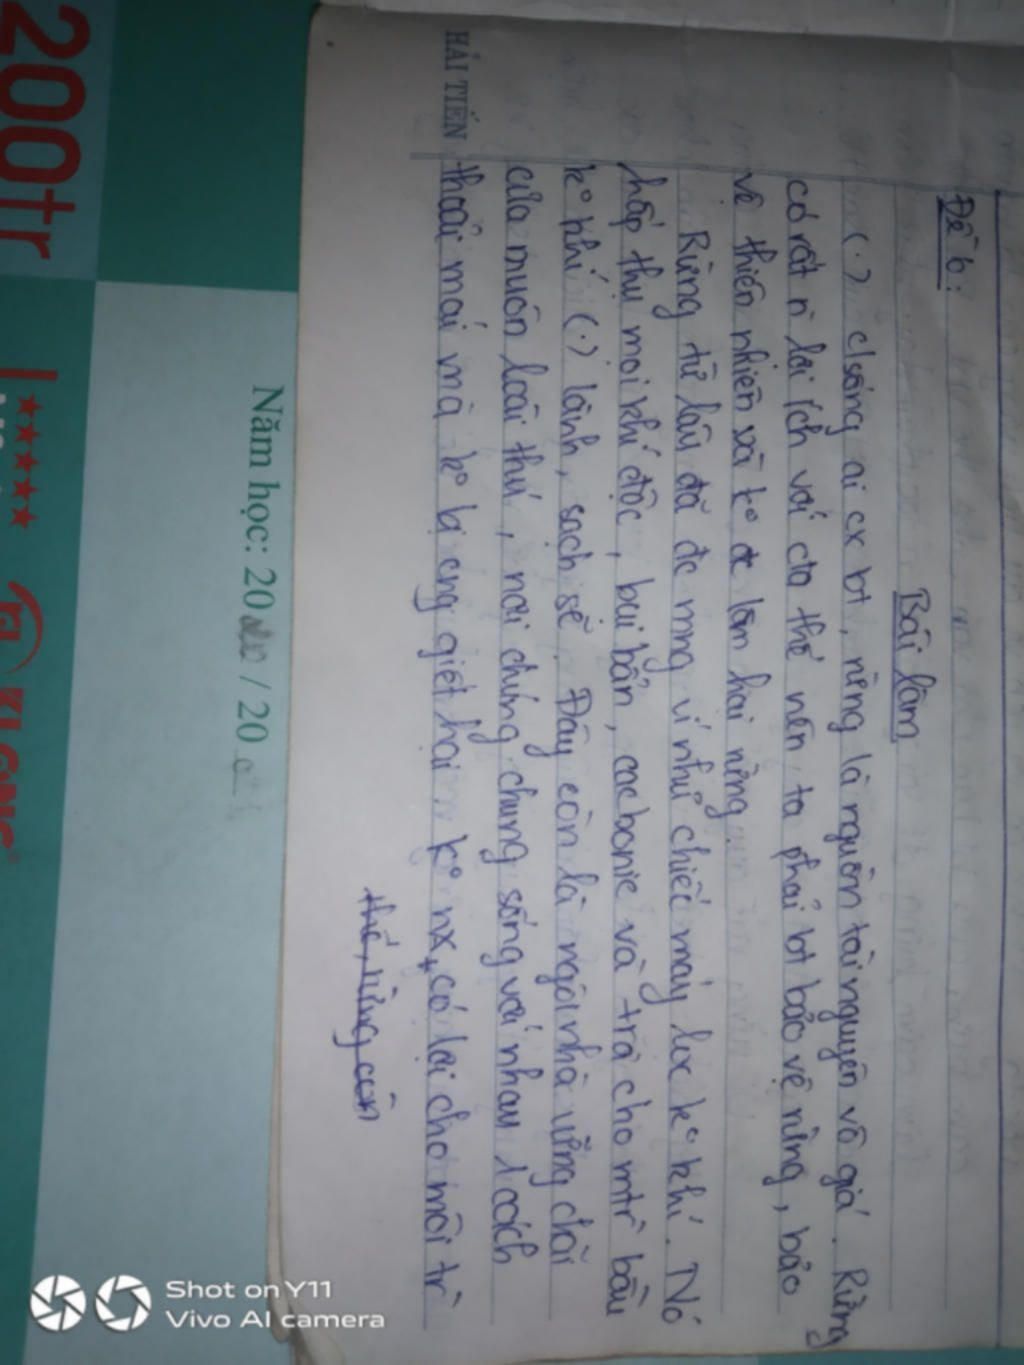 Đề 6:
Bài làm
(.) c/sống ai cx bt, rừng là nguồn tài nguyên vô giá. Rừng
có rất n lợi ích với cta thế nên ta phải bt bảo vệ rừng, bảo
vệ thiên nhiên và k° đc làm hại rừng.
Rừng từ lâu đã đc mng ví như chiếc máy lọc k° khí. Nó
hấp thụ mọi khí độc, bụi bẩn, cacbonic và trả cho mtr` bầu
k° khí (.) lành, sạch sẽ. Đây còn là ngôi nhà vững chãi
của muôn loài thú, nơi chúng chung sống với nhau 1 cách
thoải mái mà k° bị cng giết hại. k° nx, có lợi cho môi tr`
thế, rừng còn
HẢI TIẾN
Năm học: 20 / 20
200tr
KLONG
Shot on Y11
Vivo AI camera